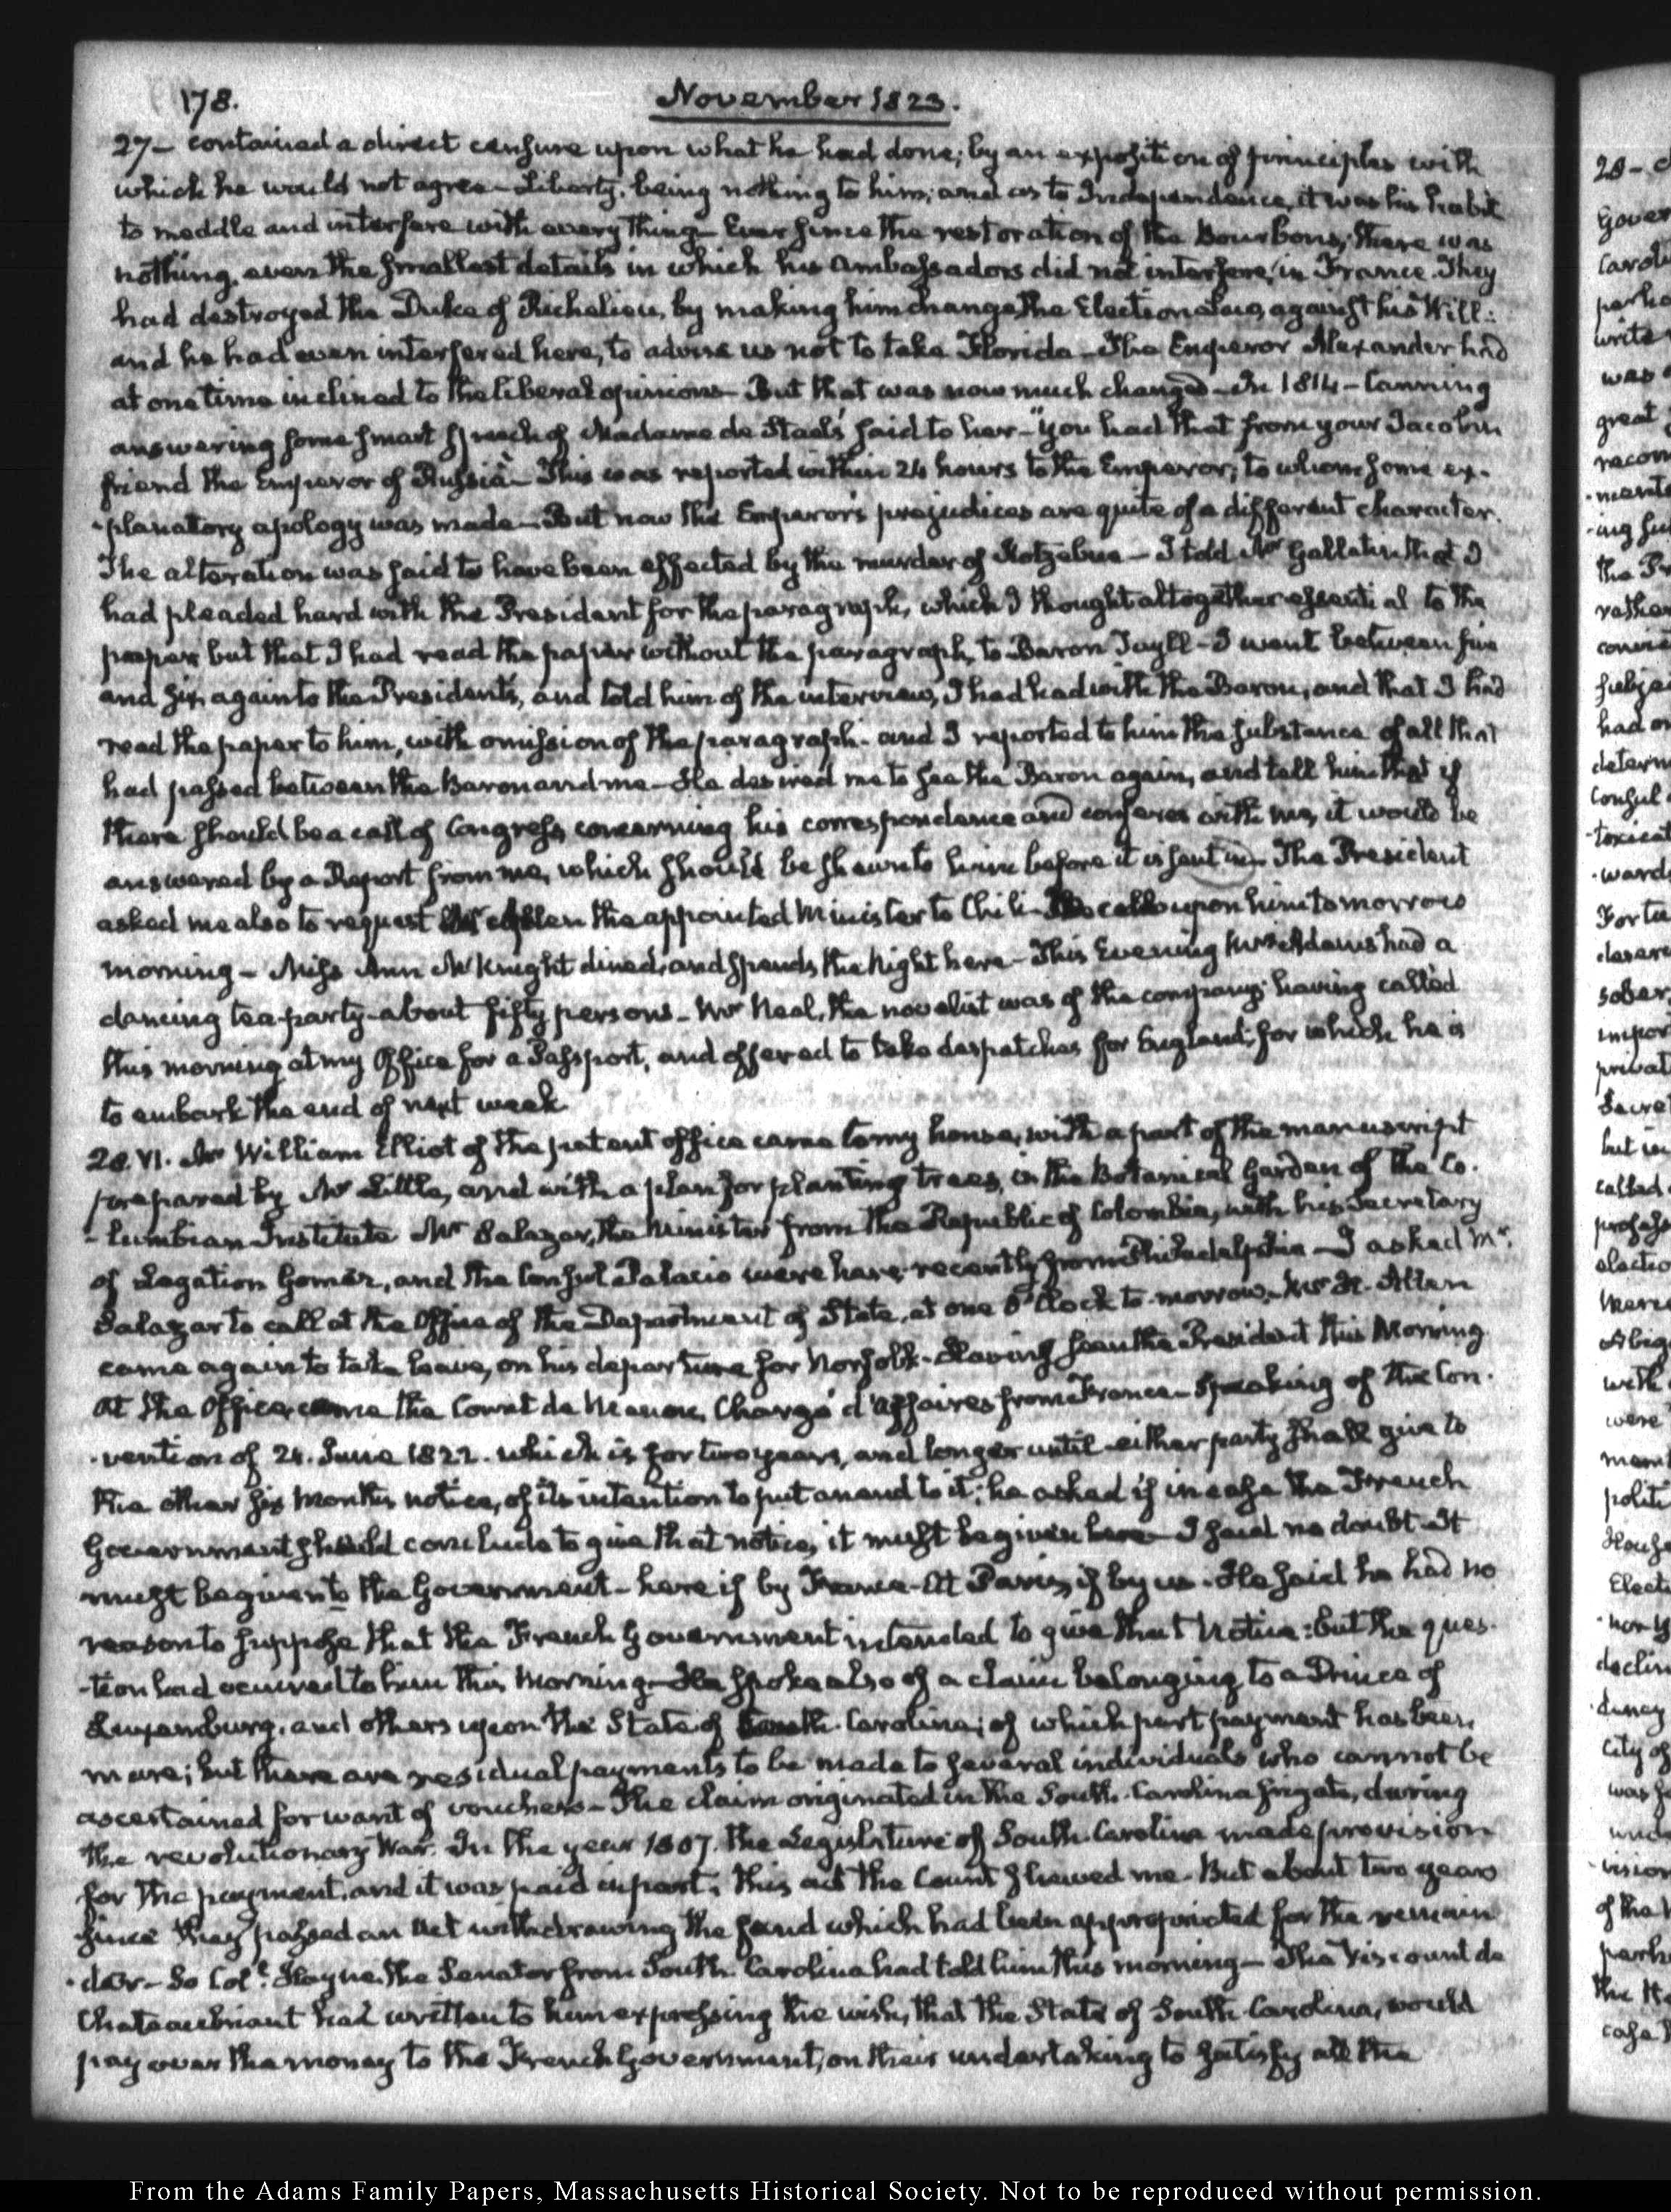 178.
November 1823.
27— contained a direct censure upon what he had done; by an exposition of principles with
which he would not agree— Liberty, being nothing to him; and as to Independence, it was his habit
to meddle and interfere with every thing— Ever since the restoration of the Bourbons, there was
nothing, even the smallest details in which his Ambassadors did not interfere, in France. They
had destroyed the Duke of Richelieu, by making him change the Election Law, against his Will:
and he had even interfered here, to advise us not to take Florida— The Emperor Alexander had
at one time inclined to the liberal opinions— But that was now much changed— In 1814— Canning
answering some smart speech of Madame de Stael's said to her— "you had that from your Jacobin
friend the Emperor of Russia"— This was reported within 24 hours to the Emperor; to whom some ex-
-planatory apology was made— But now the Emperor's prejudices are quite of a different character.
The alteration was said to have been effected by the murder of Kotzebue— I told Mr Gallatin that I
had pleaded hard with the President for the paragraph, which I thought altogether essential to the
paper but that I had read the paper without the paragraph, to Baron Tuyll— I went between five
and six again to the President's, and told him of the interview, I had had with the Baron, and that I had
read the paper to him, with omission of the paragraph. and I reported to him the substance of all that
had passed between the Baron and me— He desired me to see the Baron again, and tell him that if
there should be a call of Congress concerning his correspondence and conferences with me, it would be
answered by a Report from me, which should be shewn to him before it is sent in— The President
asked me also to request Mr Allen the appointed Minister to Chili— To call upon him tomorrow
morning— Miss Ann McKnight dined, and spends the Night here— This Evening Mrs Adams had a
dancing tea-party— about fifty persons— Mr Neal, the novelist was of the company; having called
this morning at my Office for a Passport, and offered to take despatches for England; for which he is
to embark the end of next week
28. VI. Mr William Elliot of the patent office came to my house, with a part of the manuscript
prepared by Mr Little, and with a plan for planting trees, in the Botanical Garden of the Co-
-lumbian Institute Mr Salazar, the Minister from the Republic of Colombia, with his Secretary
of Legation Gomez, and the Consul Palacio were here, recently from Philadelphia— I asked Mr
Salazar to call at the Office of the Department of State, at one O'Clock to-morrow. Mr H. Allen
came again to take leave, on his departure for Norfolk— Having seen the President this Morning
At the Office came the Count de Menou, Chargé d'Affaires from France— Speaking of the Con-
-vention of 24. June 1822. which is for two years, and longer until either party shall give to
the other six Months notice, of its intention to put an end to it; he asked if in case the French
Government should conclude to give that notice, it must be given here— I said no doubt— It
must be given to the Government— here if by France— At Paris, if by us. He said he had no
reason to suppose that the French Government intended to give that Notice: but the ques-
-tion had occurred to him this Morning— He spoke also of a claim belonging to a Prince of
Luxemburg, and others upon the State of South-Carolina; of which part payment has been
made; but there are residual payments to be made to several individuals who cannot be
ascertained for want of vouchers— The claim originated in the South-Carolina frigate, during
the revolutionary War. In the year 1807. the Legislature of South-Carolina made provision
for the payment, and it was paid in part. this act the Count shewed me. But about two years
since they passed an Act withdrawing the fund which had been appropriated for the remain
-der— So Coll. Hayne the Senator from South Carolina had told him this morning— The Viscount de
Chateaubriant had written to him expressing the wish, that the State of South-Carolina, would
pay over the money to the French Government, on their undertaking to satisfy all the
From the Adams Family Papers, Massachusetts Historical Society. Not to be reproduced without permission.